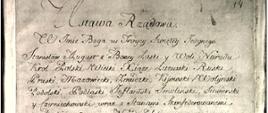 14
Ustawa Rządowa.
W Imie Boga w Trójcy Swiętey Jedynego.
Stanisław August z Bożey Łaski y Woli Narodu
Król Polski, Wielki Xiąże Litewski, Ruski
Pruski Mazowiecki, Żmudzki, Kijowski Wołyński
Podolski, Podlaski Inflantski Smoleński, Siewierski
y Czerniechowski, wraz z Stanami Skonfederowanemi